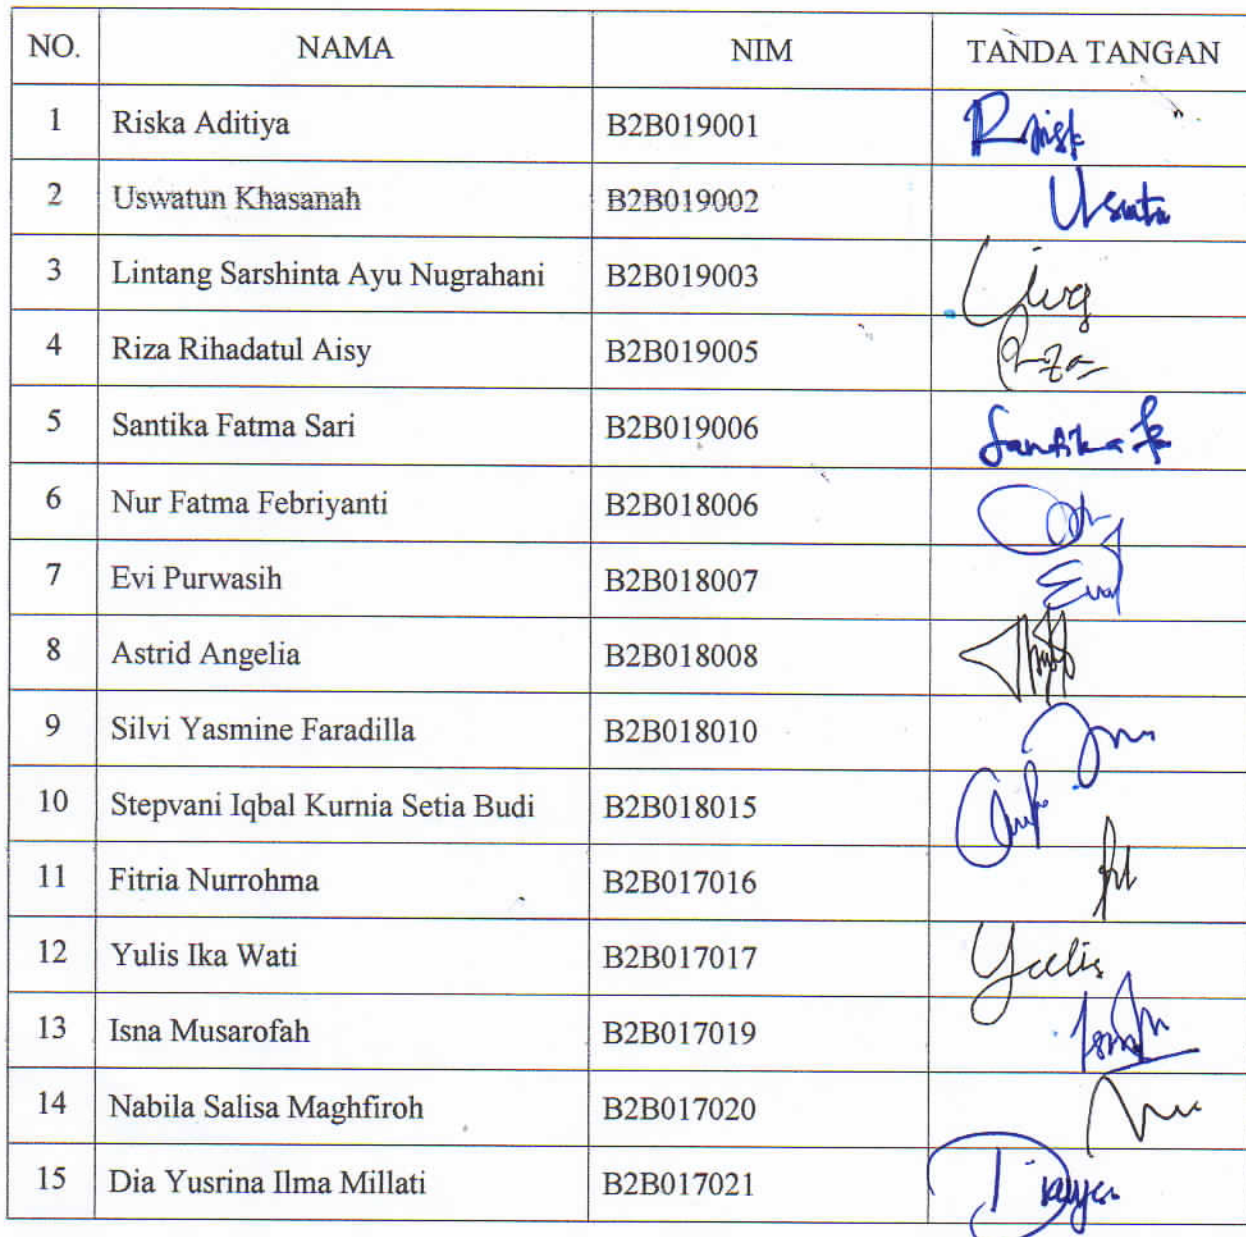 NO. NAMA NIM TANDA TANGAN
1 Riska Aditiya B2B019001 Risk
2 Uswatun Khasanah B2B019002
3 Lintang Sarshinta Ayu Nugrahani B2B019003
4 Riza Rihadatul Aisy B2B019005
5 Santika Fatma Sari B2B019006 Santika
6 Nur Fatma Febriyanti B2B018006
7 Evi Purwasih B2B018007
8 Astrid Angelia B2B018008
9 Silvi Yasmine Faradilla B2B018010
10 Stepvani Iqbal Kurnia Setia Budi B2B018015
11 Fitria Nurrohma B2B017016
12 Yulis Ika Wati B2B017017 Yulis
13 Isna Musarofah B2B017019
14 Nabila Salisa Maghfiroh B2B017020
15 Dia Yusrina Ilma Millati B2B017021